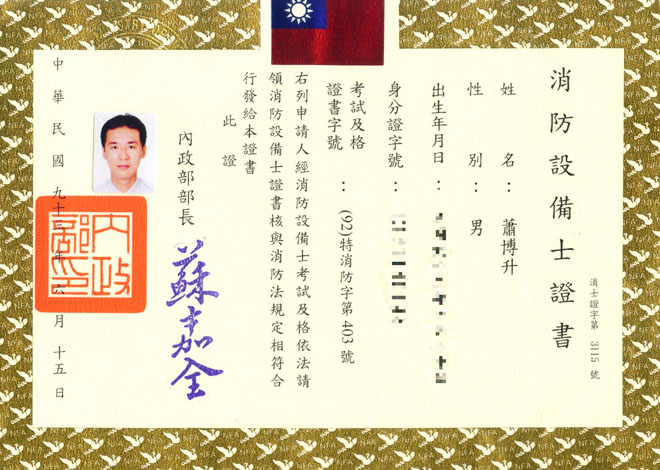 消防設備士證書
消士證字第 3115 號
姓名：蕭博升
性別：男
出生年月日：
身分證字號：
考試及格
證書字號：(92)特消防字第403號
右列申請人經消防設備士考試及格依法請
領消防設備士證書核與消防法規定相符合
行發給本證書
此證
內政部部長
蘇嘉全
內政部印
中華民國九十三年六月十五日